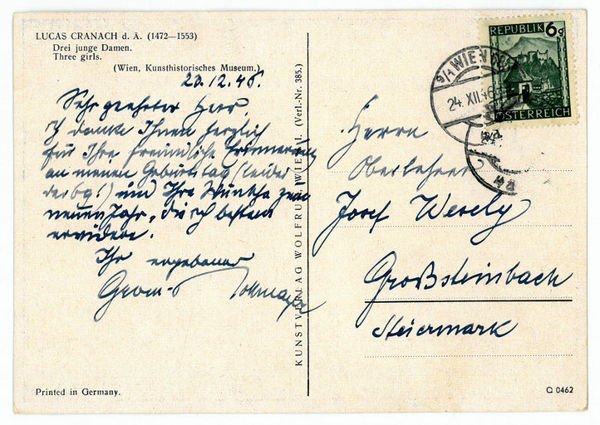 LUCAS CRANACH d. Ä. (1472—1553)
Drei junge Damen.
Three girls.
(Wien, Kunsthistorisches Museum.)
23.12.46.
Sehr geehrter Herr
ich danke Ihnen herzlich
für Ihre freundliche Erinnerung
an meinen Geburtstag (leider
der 69!) und Ihre Wünsche zum
neuen Jahr, die ich bestens
erwidere.
Ihr ergebener
KUNSTVERLAG WOLFRUM WIEN I. (Verl.-Nr. 385.)
REPUBLIK 6g
ÖSTERREICH
WIEN
24. XII. 46
Herrn
Oberlehrer
Josef Wesely
Großsteinbach
Steiermark
Printed in Germany.
Q 0462